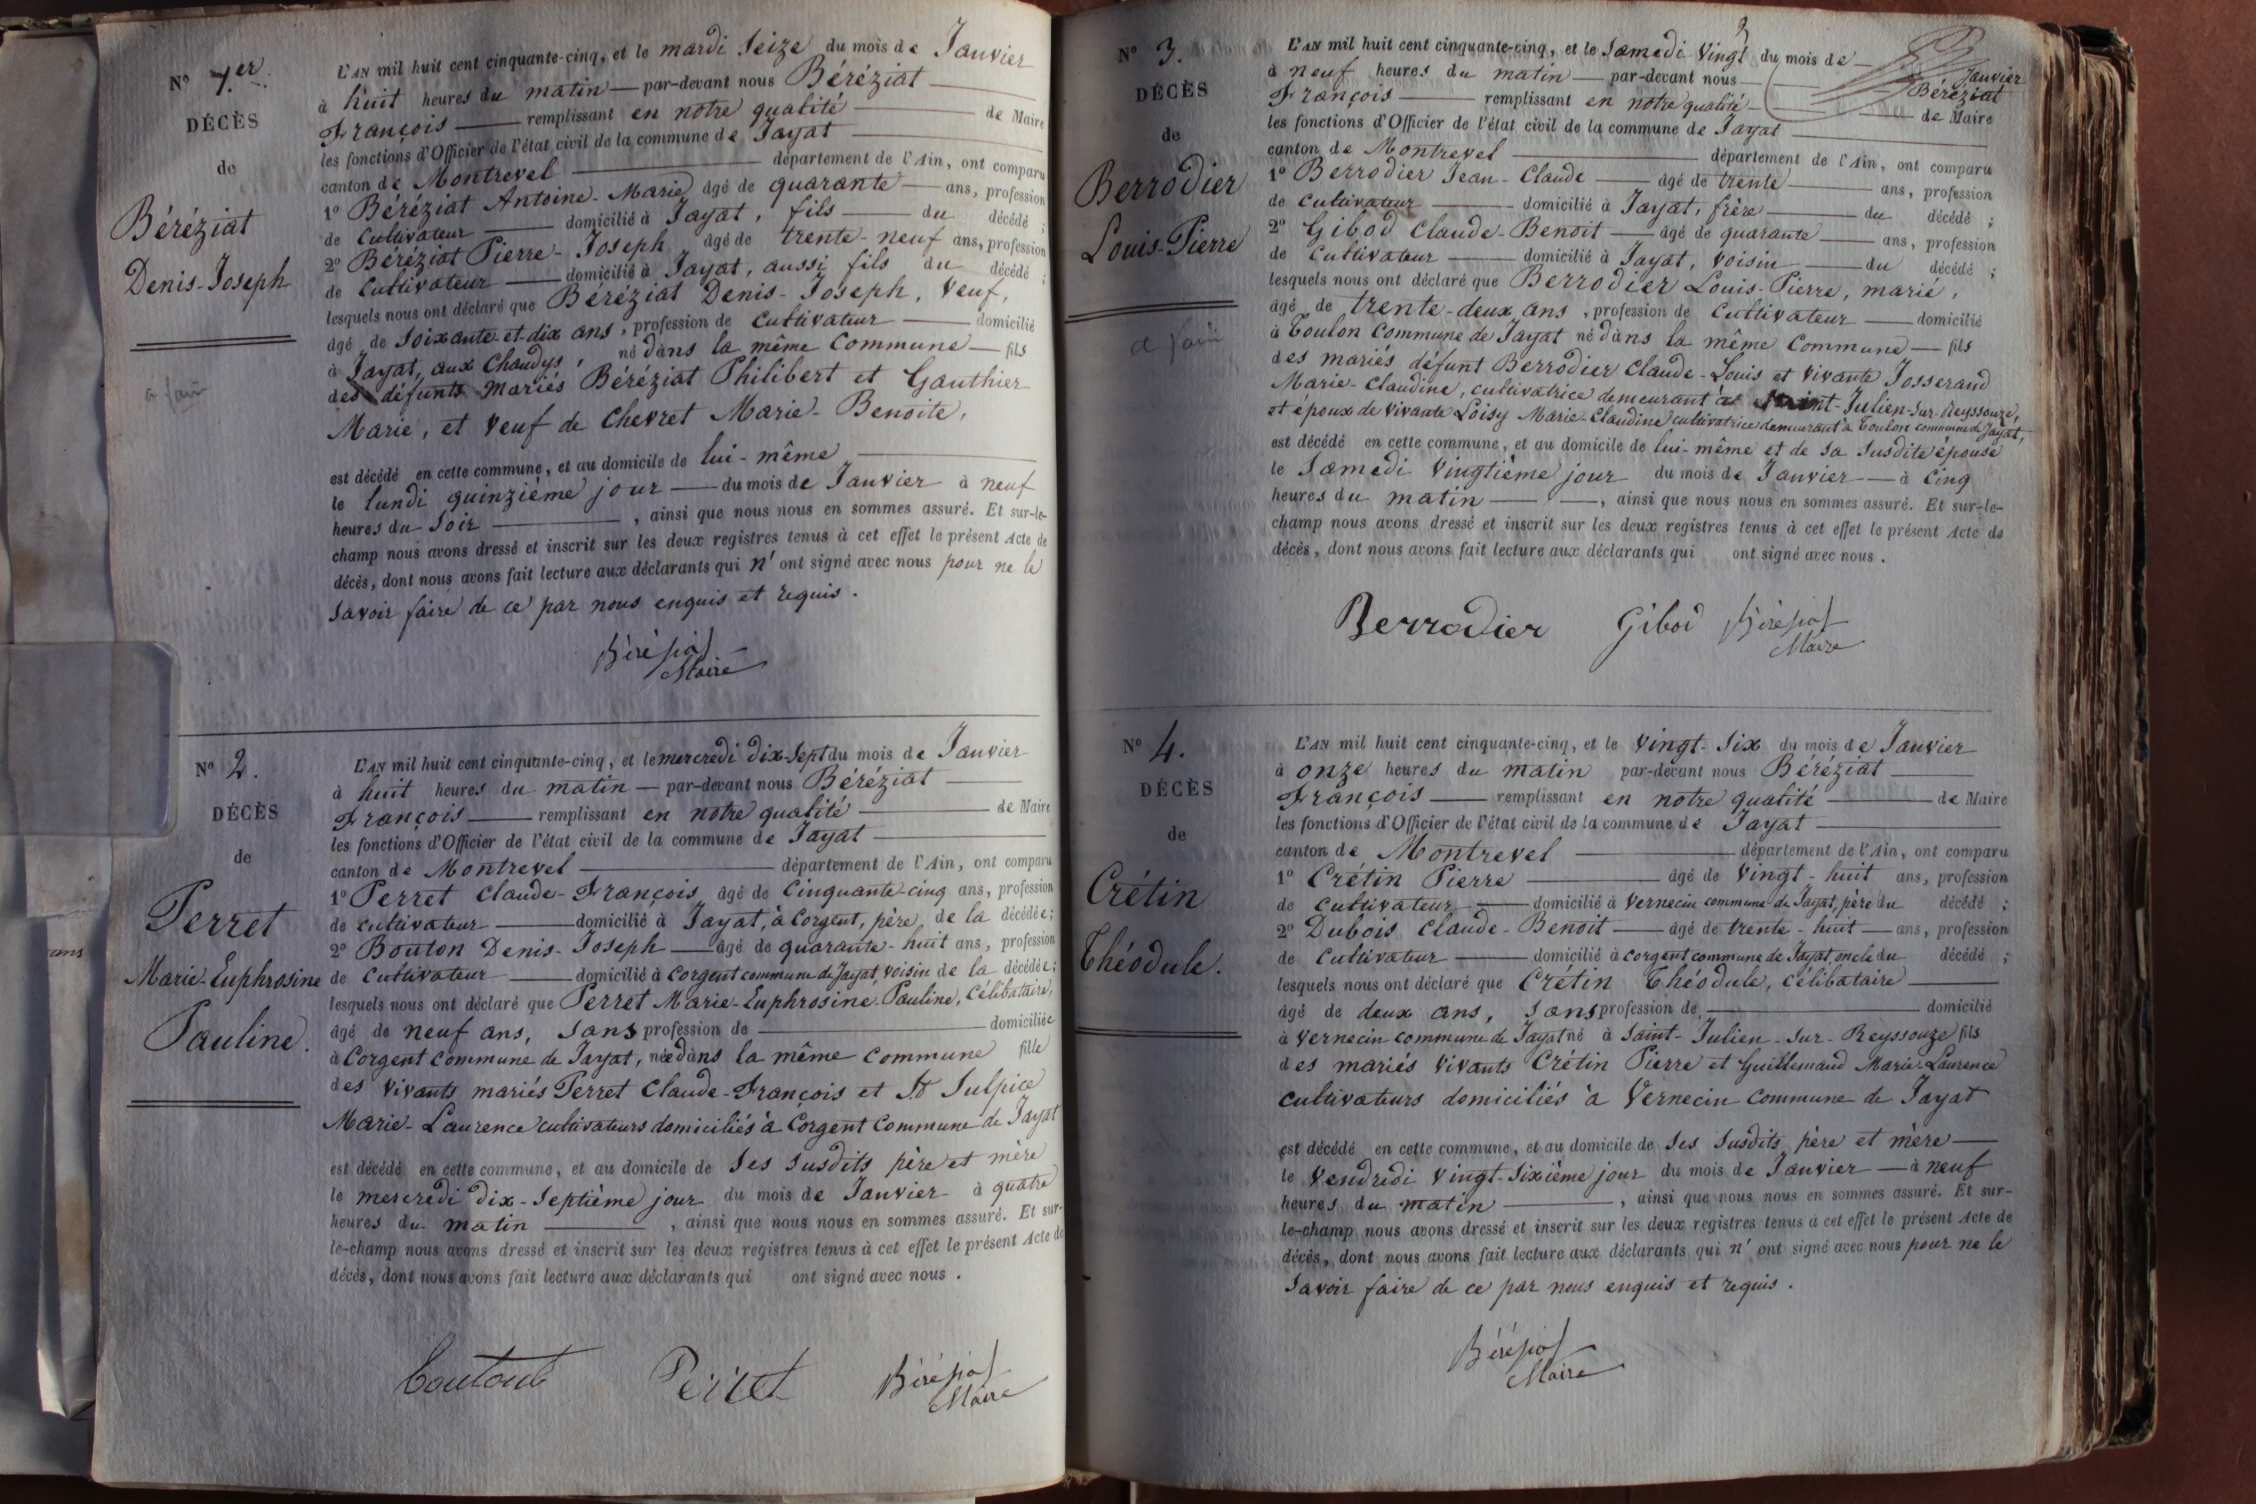 Nº 1.er
DÉCÈS
de
Béréziat
Denis-Joseph
a fair
L'AN mil huit cent cinquante-cinq, et le mardi seize du mois de Janvier
à huit heures du matin — par-devant nous Béréziat
François — remplissant en notre qualité — de Maire
les fonctions d'Officier de l'état civil de la commune de Jayat
canton de Montrevel — département de l'Ain, ont comparu
1º Béréziat Antoine-Marie âgé de quarante — ans, profession
de cultivateur — domicilié à Jayat, fils — du décédé ;
2º Béréziat Pierre-Joseph âgé de trente-neuf ans, profession
de cultivateur — domicilié à Jayat, aussi fils du décédé ;
lesquels nous ont déclaré que Béréziat Denis-Joseph, veuf,
âgé de soixante et dix ans, profession de cultivateur — domicilié
à Jayat, aux Chaudys, né dans la même commune — fils
des défunts mariés Béréziat Philibert et Gauthier
Marie, et veuf de Chevret Marie-Benoite,
est décédé en cette commune, et au domicile de lui-même
le lundi quinzième jour — du mois de Janvier à neuf
heures du soir —, ainsi que nous nous en sommes assuré. Et sur-le-
champ nous avons dressé et inscrit sur les deux registres tenus à cet effet le présent Acte de
décès, dont nous avons fait lecture aux déclarants qui n'ont signé avec nous pour ne le
savoir faire de ce par nous enquis et requis.
Béréziat
Maire
Nº 2.
DÉCÈS
de
Perret
Marie-Euphrosine
Pauline.
L'AN mil huit cent cinquante-cinq, et le mercredi dix-sept du mois de Janvier
à huit heures du matin — par-devant nous Béréziat
François — remplissant en notre qualité — de Maire
les fonctions d'Officier de l'état civil de la commune de Jayat
canton de Montrevel — département de l'Ain, ont comparu
1º Perret Claude-François âgé de cinquante-cinq ans, profession
de cultivateur — domicilié à Jayat, à Corgent, père de la décédée ;
2º Bouton Denis-Joseph — âgé de quarante-huit ans, profession
de cultivateur — domicilié à Corgent commune de Jayat, voisin de la décédée ;
lesquels nous ont déclaré que Perret Marie-Euphrosine-Pauline, célibataire,
âgé de neuf ans, sans profession de — domiciliée
à Corgent commune de Jayat, née dans la même commune fille
des vivants mariés Perret Claude-François et St Sulpice
Marie-Laurence cultivateurs domiciliés à Corgent commune de Jayat
est décédé en cette commune, et au domicile de ses susdits père et mère
le mercredi dix-septième jour du mois de Janvier à quatre
heures du matin —, ainsi que nous nous en sommes assuré. Et sur-
le-champ nous avons dressé et inscrit sur les deux registres tenus à cet effet le présent Acte de
décès, dont nous avons fait lecture aux déclarants qui ont signé avec nous.
Perret Béréziat
Maire
ans
3
Nº 3.
DÉCÈS
de
Berrodier
Louis-Pierre
a fair
L'AN mil huit cent cinquante-cinq, et le samedi vingt du mois de Janvier
à neuf heures du matin — par-devant nous — Béréziat
François — remplissant en notre qualité — de Maire
les fonctions d'Officier de l'état civil de la commune de Jayat
canton de Montrevel — département de l'Ain, ont comparu
1º Berrodier Jean-Claude — âgé de trente — ans, profession
de cultivateur — domicilié à Jayat, frère — du décédé ;
2º Gibod Claude-Benoit — âgé de quarante — ans, profession
de cultivateur — domicilié à Jayat, voisin — du décédé ;
lesquels nous ont déclaré que Berrodier Louis-Pierre, marié,
âgé de trente-deux ans, profession de cultivateur — domicilié
à Toulon commune de Jayat né dans la même commune — fils
des mariés défunt Berrodier Claude-Louis et vivante Josserand
Marie-Claudine, cultivatrice demeurant à Saint-Julien-sur-Reyssouze,
et époux de vivante Loisy Marie-Claudine cultivatrice demeurant à Toulon commune de Jayat,
est décédé en cette commune, et au domicile de lui-même et de sa susdite épouse
le samedi vingtième jour du mois de Janvier — à cinq
heures du matin —, ainsi que nous nous en sommes assuré. Et sur-le-
champ nous avons dressé et inscrit sur les deux registres tenus à cet effet le présent Acte de
décès, dont nous avons fait lecture aux déclarants qui ont signé avec nous.
Berrodier Gibod Béréziat
Maire
Nº 4.
DÉCÈS
de
Crétin
Théodule.
L'AN mil huit cent cinquante-cinq, et le vingt-six du mois de Janvier
à onze heures du matin par-devant nous Béréziat
François — remplissant en notre qualité — de Maire
les fonctions d'Officier de l'état civil de la commune de Jayat
canton de Montrevel — département de l'Ain, ont comparu
1º Crétin Pierre — âgé de vingt-huit ans, profession
de cultivateur — domicilié à Vernecin commune de Jayat, père du décédé ;
2º Dubois Claude-Benoit — âgé de trente-huit — ans, profession
de cultivateur — domicilié à Corgent commune de Jayat, oncle du décédé ;
lesquels nous ont déclaré que Crétin Théodule, célibataire
âgé de deux ans, sans profession de — domicilié
à Vernecin commune de Jayat né à Saint-Julien-sur-Reyssouze fils
des mariés vivants Crétin Pierre et Guillemaud Marie-Laurence
cultivateurs domiciliés à Vernecin commune de Jayat
est décédé en cette commune, et au domicile de ses susdits père et mère —
le vendredi vingt-sixième jour du mois de Janvier — à neuf
heures du matin —, ainsi que nous nous en sommes assuré. Et sur-
le-champ nous avons dressé et inscrit sur les deux registres tenus à cet effet le présent Acte de
décès, dont nous avons fait lecture aux déclarants qui n'ont signé avec nous pour ne le
savoir faire de ce par nous enquis et requis.
Béréziat
Maire